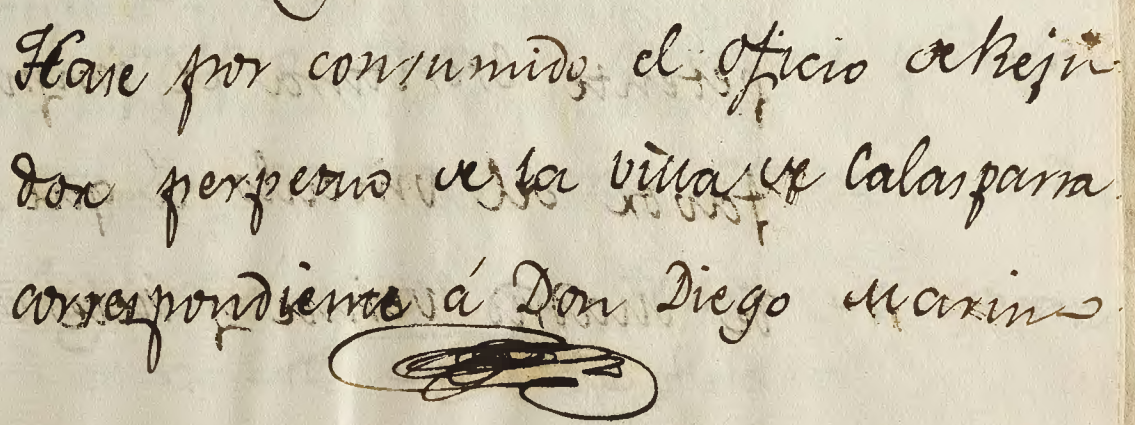 Hase por consumido el oficio de Reji
dor perpetuo de la villa de Calasparra
correspondiente á Don Diego Marin